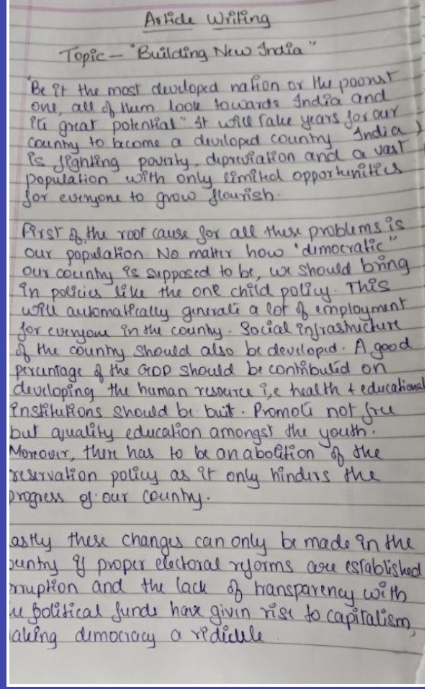 Article Writing
Topic - "Building New India"
"Be it the most developed nation or the poorest
one, all of them look towards India and
its great potential" It will take years for our
country to become a developed country. India
is fighting poverty, depreviation and a vast
population with only limited opportunities
for everyone to grow flourish.
First of, the root cause for all these problems is
our population. No matter how 'democratic"
our country is supposed to be, we should bring
in policies like the one child policy. This
will automatically generate a lot of employment
for everyone in the country. Social infrastructure
of the country should also be developed. A good
percentage of the GDP should be contributed on
developing the human resource i,e health + educational
institutions should be buit. Promote not free
but quality education amongst the youth.
Moreover, there has to be an abolition of the
reservation policy as it only hinders the
progress of our country.
astly these changes can only be made in the
ountry if proper electoral reforms are established
rruption and the lack of transparency with
e political funds have given rise to capitalism,
aking democracy a rediclule